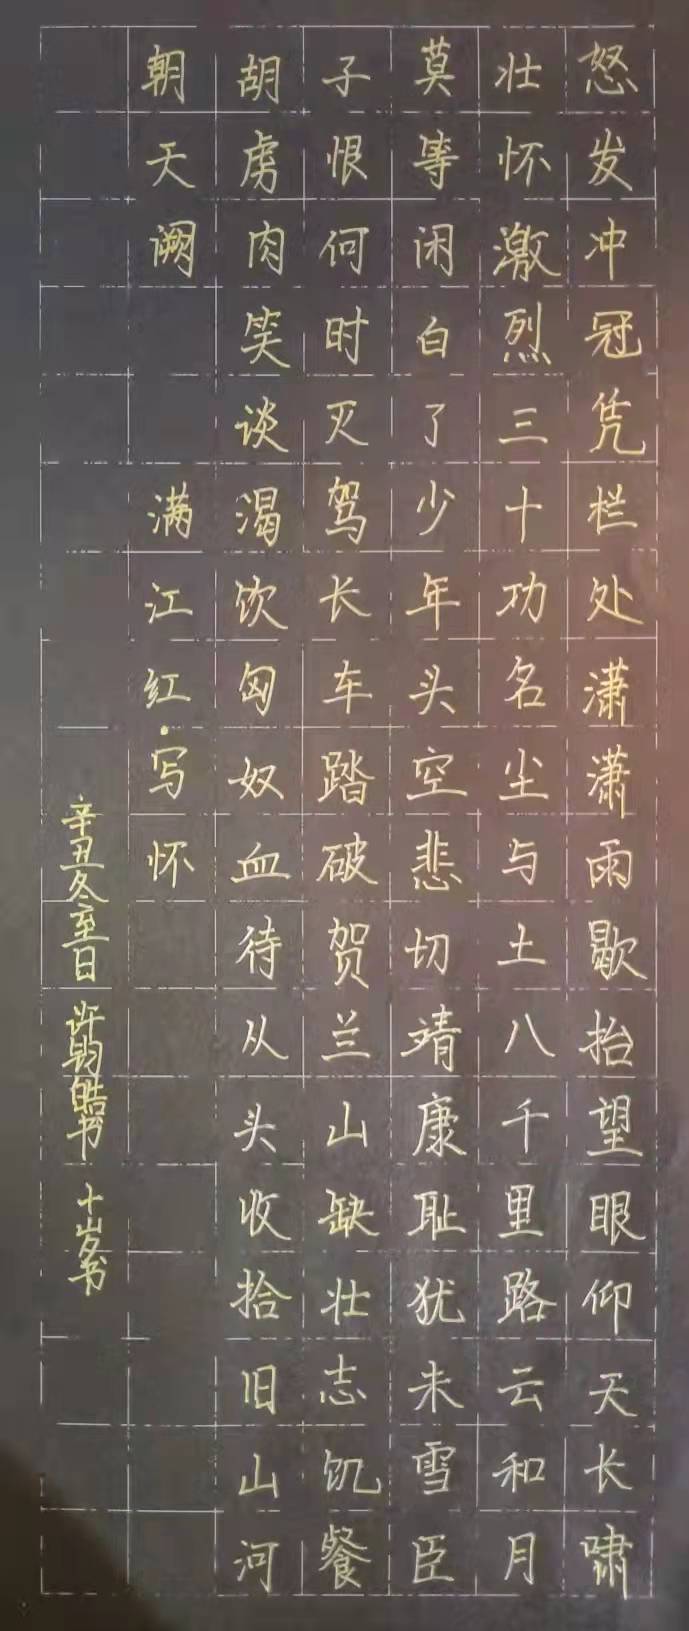 怒发冲冠凭栏处潇潇雨歇抬望眼仰天长啸
壮怀激烈三十功名尘与土八千里路云和月
莫等闲白了少年头空悲切靖康耻犹未雪臣
子恨何时灭驾长车踏破贺兰山缺壮志饥餐
胡虏肉笑谈渴饮匈奴血待从头收拾旧山河
朝天阙 满江红·写怀
辛丑冬至日 许钧皓书 十岁书